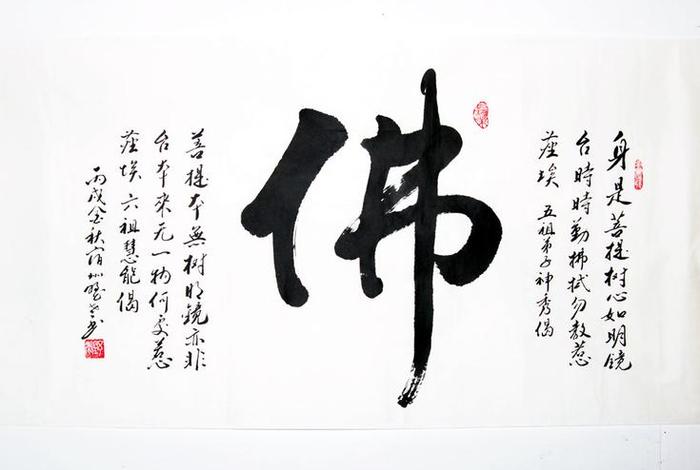 身是菩提樹心如明鏡
台時時勤拂拭勿教惹
塵埃 五祖弟子神秀偈
佛
菩提本無樹明鏡亦非
台本来无一物何处惹
塵埃 六祖慧能偈
丙戌金秋宿州